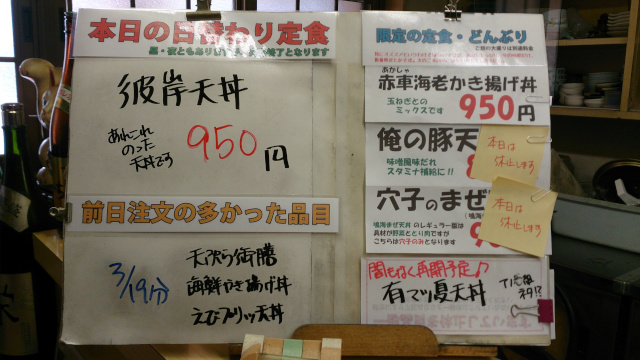 本日の日替わり定食
昼・夜ともありますが終了となります
彼岸天丼
あれこれ
のった
天丼です
950円
前日注文の多かった品目
3/19分
天ぷら御膳
海鮮かき揚げ丼
えびブリッツ天丼
限定の定食・どんぶり
あかしゃ
赤車海老かき揚げ丼
玉ねぎとの
ミックスです
950円
俺の豚天
味噌風味だれ
スタミナ補給に!!
本日は
休止します
穴子のまぜ
鳴海まぜ天丼のレギュラー版は
具材が野菜ととり肉ですが
こちらは穴子のみとなります
本日は
休止します
間もなく再開予定♪
有マツ夏天丼